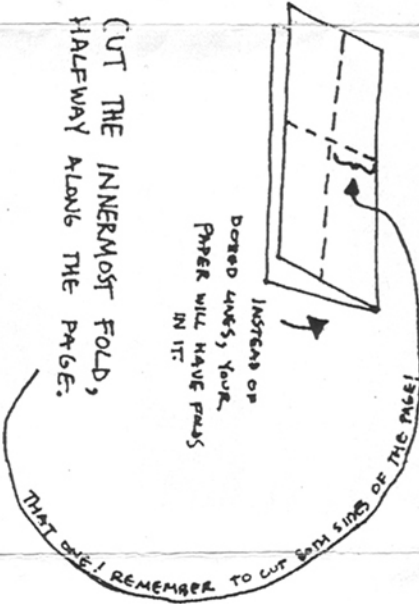 CUT THE INNERMOST FOLD,
HALFWAY ALONG THE PAGE.
INSTEAD OF
DOTTED LINES, YOUR
PAPER WILL HAVE FOLDS
IN IT.
THAT ONE! REMEMBER TO CUT BOTH SIDES OF THE PAGE!